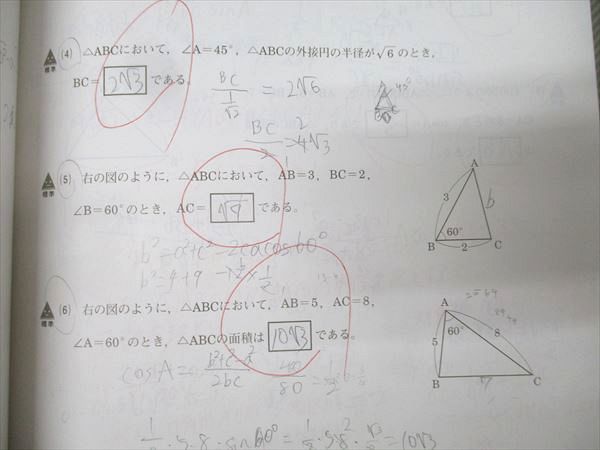 標準 (4) △ABCにおいて，∠A＝45°，△ABCの外接円の半径が√6のとき，
BC＝ 2√3 である。
BC / 1/√2 = 2√6
45°
A
B C
BC
標準 (5) 右の図のように，△ABCにおいて，AB＝3，BC＝2，
∠B＝60°のとき，AC＝ √7 である。
A
3 b
60°
B 2 C
b²=a²+c²-2ca cos60°
b²=4+9-12×1/2
標準 (6) 右の図のように，△ABCにおいて，AB＝5，AC＝8，
∠A＝60°のとき，△ABCの面積は 10√3 である。
A
60°
5 8
B C
cosA= b²+c²-a² / 2bc
80
1/2・5・8・sin60°=1/2・5・8・√3/2=10√3